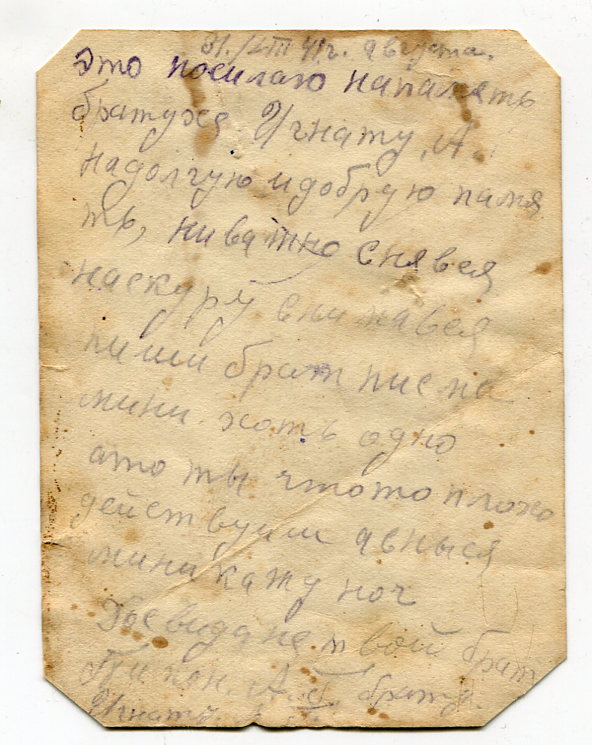 31./VIII 41 г. августа.
это посилаю напамять
братухе Игнату, А.
надолгую и добрую памя
ть, ниважно снявся
наскуру снимавея
пиши брат писма
мини хоть одно
ато ты чтото плохо
действуиш явныся
мини кажу ноч
Досвидане твой брат
Тихон. А. Г. брату.
Игнату.